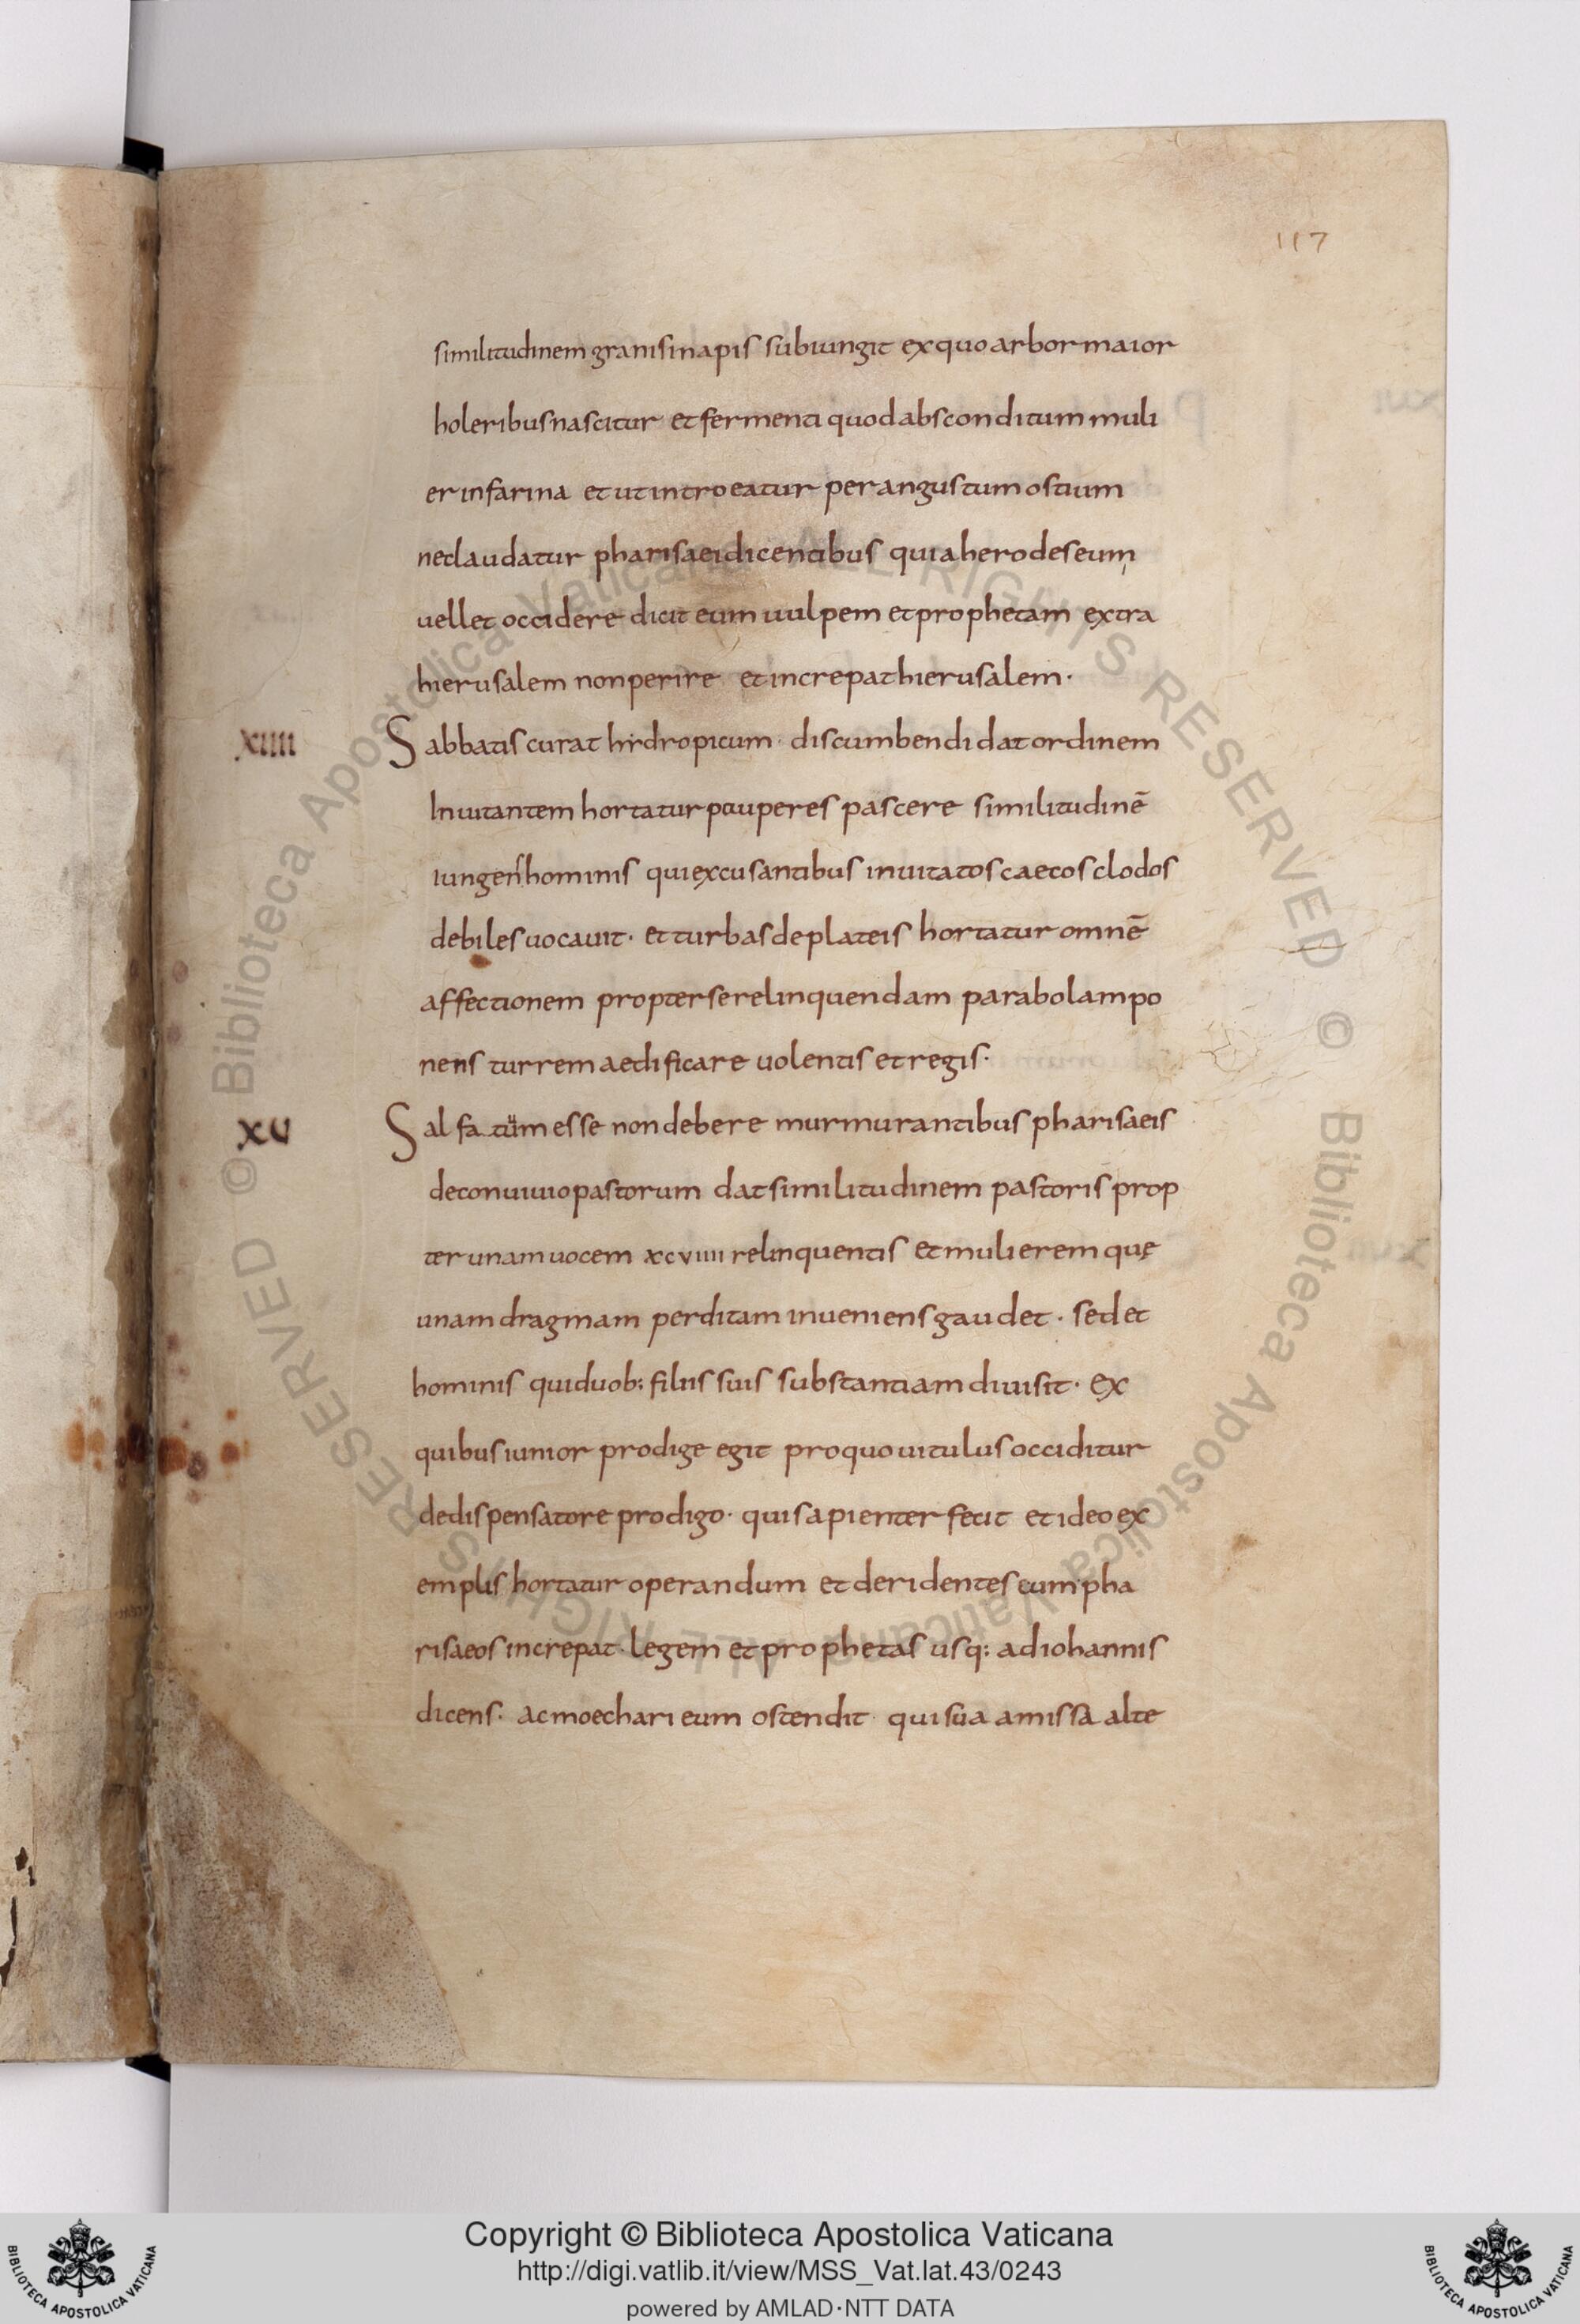 117
similitudinem granisinapis subiungit exquo arbor maior
holeribus nascitur et fermenti quod absconditum muli
er infarina et ut introeatur per angustum ostium
ne claudatur pharisaei dicentibus quia herodes eum
uellet occidere dicit eum uulpem et prophetam extra
hierusalem non perire et increpat hierusalem·
XIIII Sabbatis curat hydropicum· discumbendi dat ordinem
Inuitantem hortatur pauperes pascere similitudinē
iungens hominis qui excusantibus inuitatos caecos clodos
debiles uocauit· et turbas de plateis hortatur omnē
affectionem propter se relinquendam parabolam po
nens turrem aedificare uolentis et regis·
XV Sal fatuum esse non debere murmurantibus pharisaeis
deconuiuio pastorum dat similitudinem pastoris prop
ter unam uocem xcviiii relinquentis et mulierem quę
unam dragmam perditam inueniens gaudet· sed et
hominis qui duob; filiis suis substantiam diuisit· ex
quibus iunior prodige egit pro quo uitulus occiditur
dedispensatore prodigo· qui sapienter fecit et ideo ex
emplis hortatur operandum et deridentes eum pha
risaeos increpat· legem et prophetas usq; ad iohannis
dicens· ac moechari eum ostendit qui sua amissa alte
© Biblioteca Apostolica Vaticana ALL RIGHTS RESERVED © Biblioteca Apostolica Vaticana ALL RIGHTS RESERVED
Copyright © Biblioteca Apostolica Vaticana
http://digi.vatlib.it/view/MSS_Vat.lat.43/0243
powered by AMLAD·NTT DATA
BIBLIOTECA APOSTOLICA VATICANA
BIBLIOTECA APOSTOLICA VATICANA